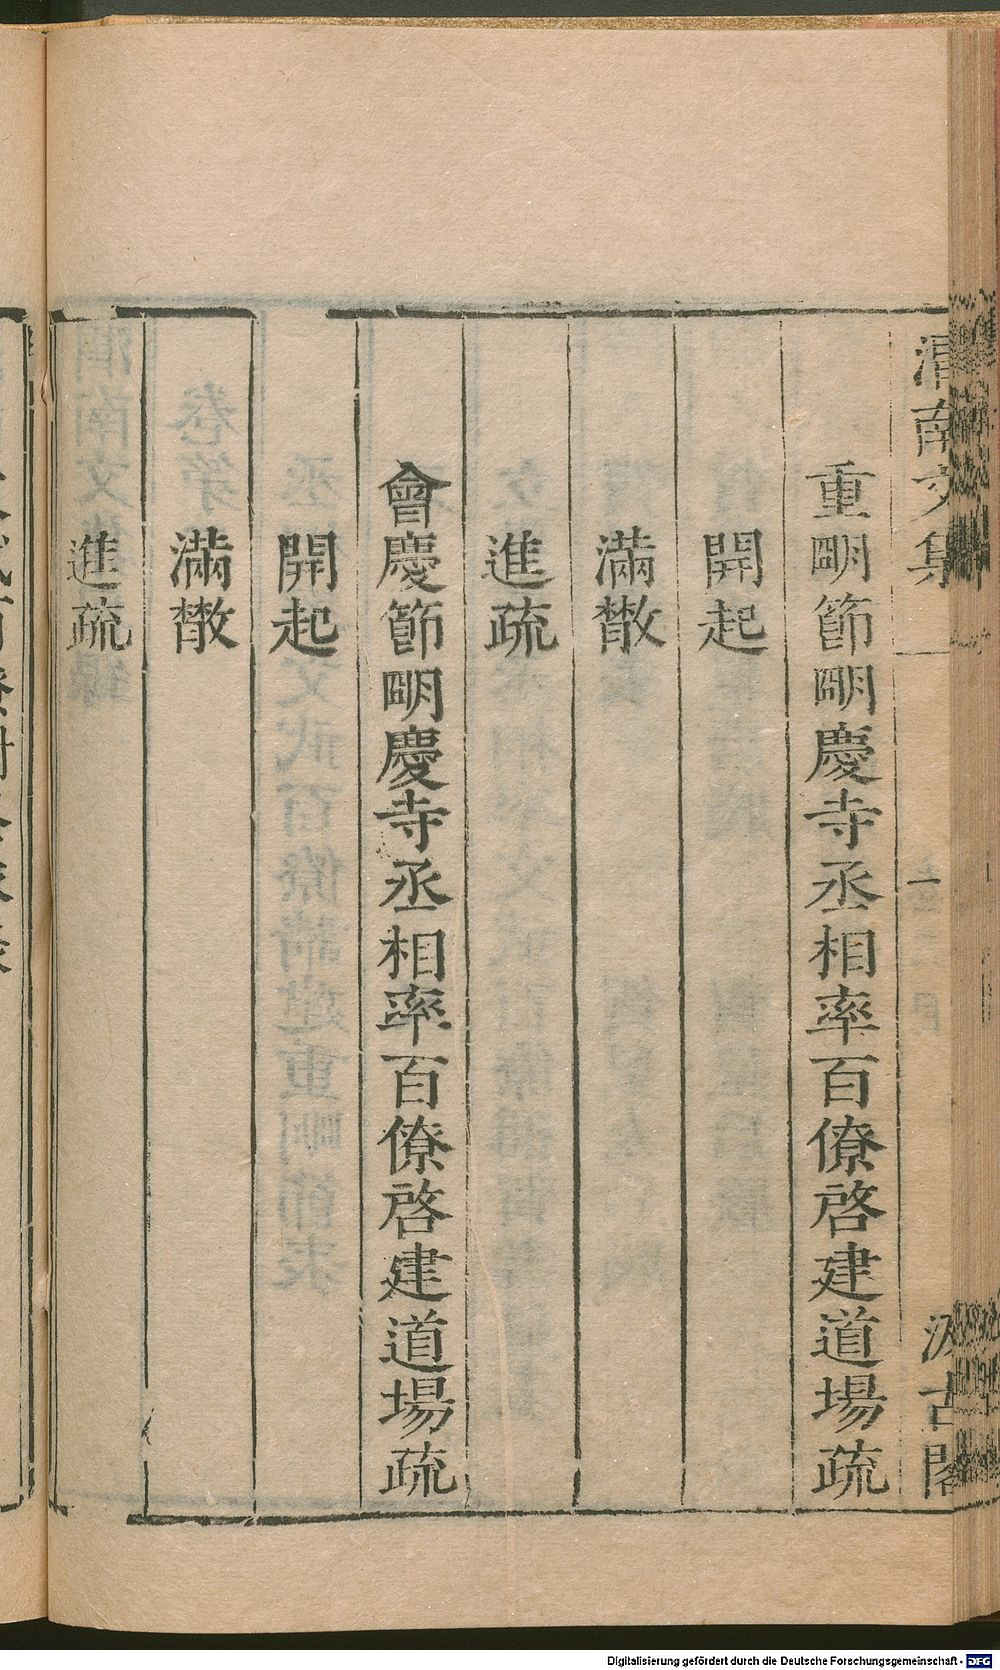 渭南文集
汲古閣
重朙節朙慶寺丞相率百僚啓建道場疏
開起
滿散
進疏
會慶節朙慶寺丞相率百僚啓建道場疏
開起
滿散
進疏
Digitalisierung gefördert durch die Deutsche Forschungsgemeinschaft - DFG